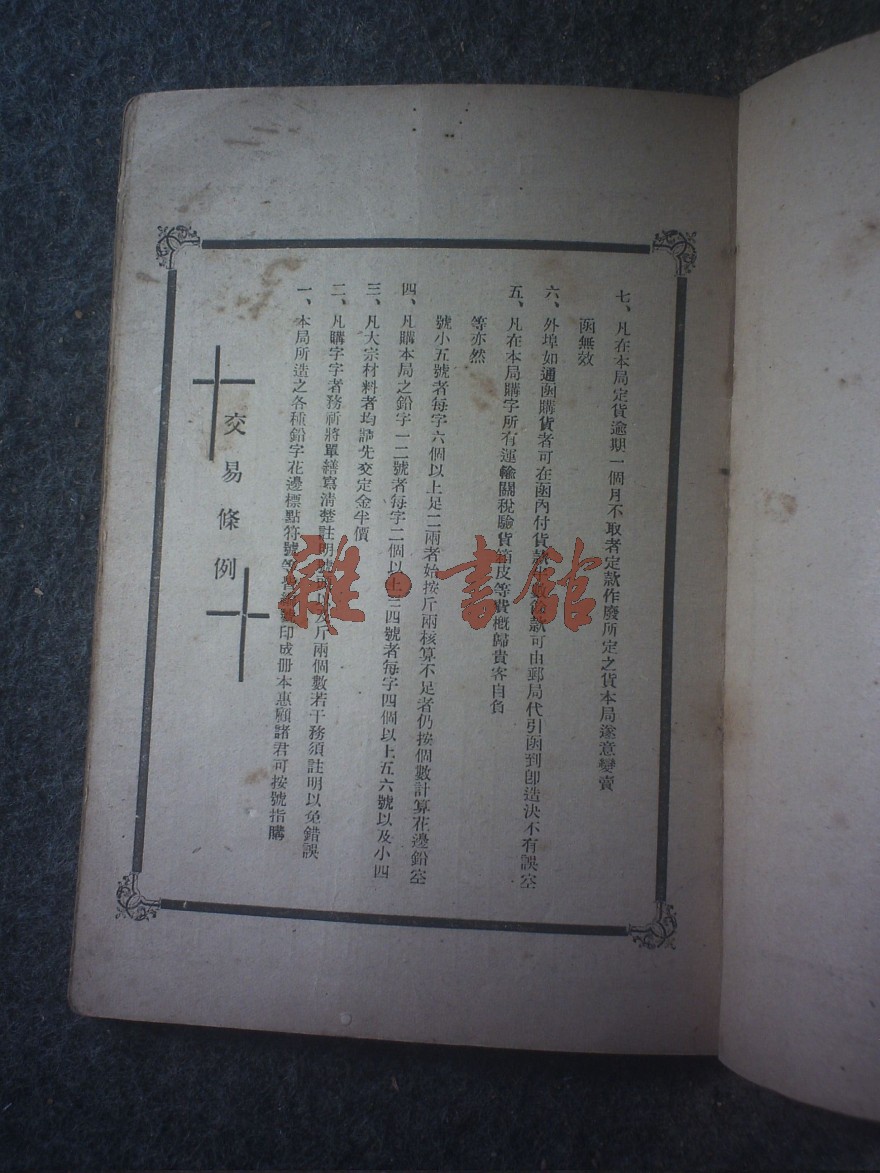 交易條例
一、本局所造之各種鉛字花邊標點符號等印成册本惠顧諸君可按號指購
二、凡購字字者務祈將單繕寫清楚註明以斤兩個數若干務須註明以免錯誤
三、凡大宗材料者均請先交定金半價
四、凡購本局之鉛字一二號者每字二個以上三四號者每字四個以上五六號以及小四
號小五號者每字六個以上足二兩者始按斤兩核算不足者仍按個數計算花邊鉛空
等亦然
五、凡在本局購字所有運輸關稅驗貨箱皮等費概歸貴客自負
六、外埠如通函購貨者可在函內付貨款半數款可由郵局代引函到卽造決不有誤空
函無效
七、凡在本局定貨逾期一個月不取者定款作廢所定之貨本局遂意變賣
雜·書館